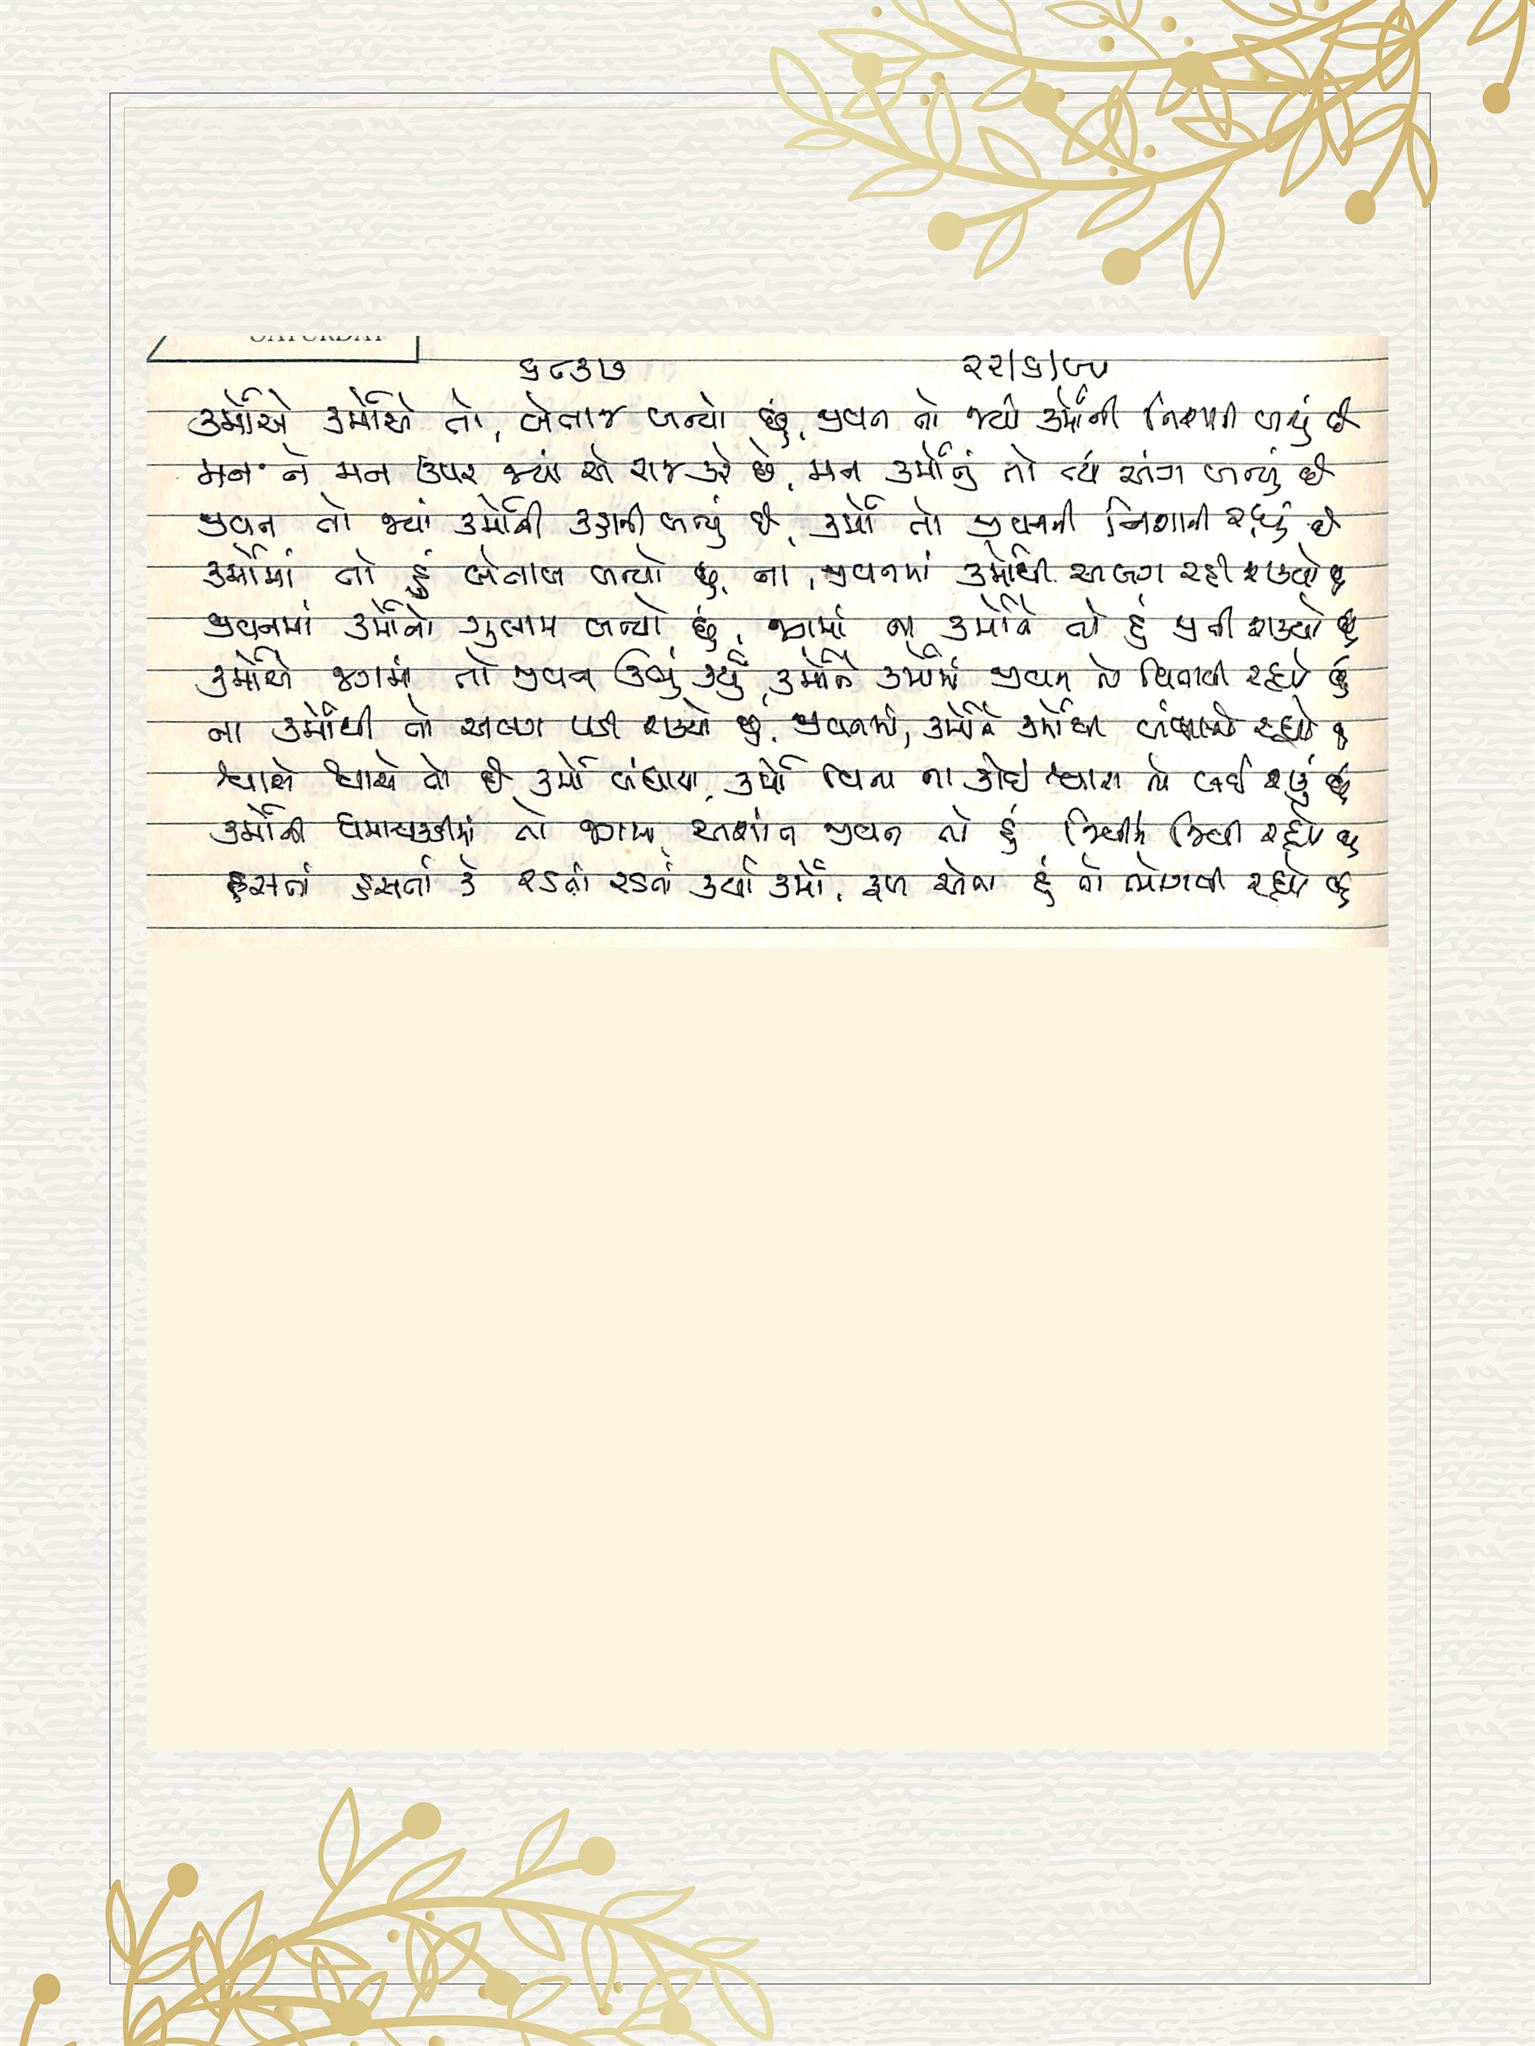 SATURDAY
૬૮૩૭ ૨૨/૬/૯૭
કર્મોએ કર્મોએ તો, બેતાજ બન્યો છું, જીવન તો જ્યાં કર્મોની નિશાની બન્યું છે
મન ને મન ઉપર જ્યાં એ રાજ કરે છે, મન કર્મોનું તો ત્યાં અંગ બન્યું છે
જીવન તો જ્યાં કર્મોની કહાની બન્યું છે, કર્મો તો જીવનની નિશાની રહ્યું છે
કર્મોમાં તો હું બેતાબ બન્યો છું, ના જીવનમાં કર્મોથી અલગ રહી શક્યો છું
જીવનમાં કર્મોનો ગુલામ બન્યો છું, જગમાં ના કર્મોને તો હું જીતી શક્યો છું
કર્મોએ જગમાં તો જીવન ઊભું કર્યું, કર્મોને કર્મોમાં જીવન તો વિતાવી રહ્યો છું
ના કર્મોથી તો અલગ પડી શક્યો છું, જીવનમાં, કર્મોને કર્મોથી બંધાતો રહ્યો છું
શ્વાસે શ્વાસે તો છે કર્મો બંધાયા, કર્મો વિના ના કોઈ શ્વાસ તો લઈ શકું છું
કર્મોની ધમાચકડીમાં તો જગમાં, અશાંત જીવન તો હું જિવી રહ્યો છું
હસતાં હસતાં કે રડતાં રડતાં કર્યા કર્મો, ફળ એના હું તો ભોગવી રહ્યો છું